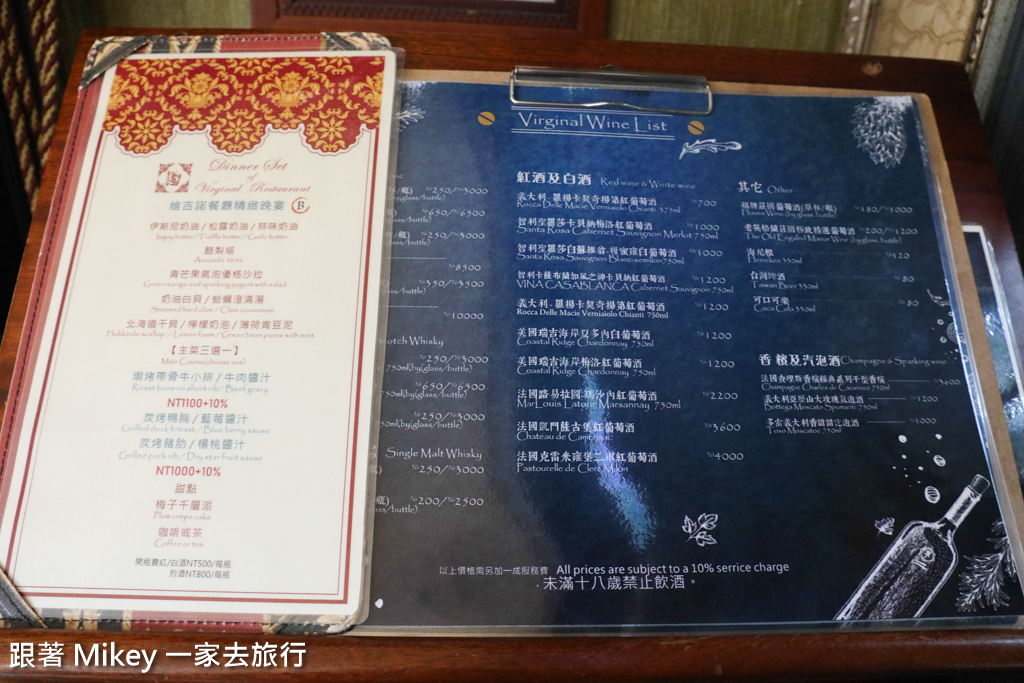 Dinner Set
of
Virginal Restaurant
維吉諾餐廳精緻晚宴 B
伊斯尼奶油/松露奶油/蒜味奶油
Isigny butter / Truffle butter / Garlic butter
酪梨塔
Avocado tarte
青芒果氣泡優格沙拉
Green mango and sparking yogurt with salad
奶油白貝/蛤蠣澄清湯
Steamed hard clam / Clam consomme
北海道干貝/檸檬奶泡/薄荷青豆泥
Hokkaido scallop / Lemon foam / Green bean puree with mint
【主菜三選一】
Main Course(choose one)
燉烤帶骨牛小排/牛肉醬汁
Roast bone-in short rib / Beef gravy
NT1100+10%
炭烤鴨胸/藍莓醬汁
Grilled duck breast / Blue berry sauce
炭烤豬肋/楊桃醬汁
Grilled pork rib / Dry star fruit sauce
NT1000+10%
甜點
梅子千層派
Plum crepe cake
咖啡或茶
Coffee or tea
開瓶費紅/白酒NT500/每瓶
烈酒NT800/每瓶
Virginal Wine List
250/3000
650/6500
250/3000
8500
350/3500
10000
Scotch Whisky
250/3000
750ml,by(glass/buttle)
650/6500
250/3000
Single Malt Whisky
250/3000
200/2500
紅酒及白酒 Red wine & Winte wine
義大利-羅揚卡契奇揚第紅葡萄酒 700
Rocca Delle Macie Vernaiolo Chianti 375ml
智利聖羅莎卡貝納梅洛紅葡萄酒 1000
Santa Rosa Cabernet Sauvignon Merlot 750ml
智利聖羅莎白蘇維翁-榭蜜雍白葡萄酒 1000
Santa Rosa Sauvignon Blanc-semillon750ml
智利卡薩布蘭加風之神卡貝納紅葡萄酒 1200
VINA CASABLANCA Cabernet Sauvignon 750ml
義大利-羅揚卡契奇揚第紅葡萄酒 1200
Rocca Delle Macie Vernaiolo Chianti 750ml
美國瑞吉海岸夏多內白葡萄酒 1200
Coastal Ridge Chardonnay 750ml
美國瑞吉海岸梅洛紅葡萄酒 1200
Coastal Ridge Chardonnay 750ml
法國路易拉圖-瑪沙內紅葡萄酒 2200
Mar Louis Latour Marsannay 750ml
法國凱門薩古堡紅葡萄酒 3600
Chateau de Camensac
法國克雷米雍堡二軍紅葡萄酒 4000
Pastourelle de Clerc Milon
其它 Other
招牌莊園葡萄酒(單杯/瓶) 180/1000
House Wine (by glass, buttle)
老英格蘭莊園極致精選葡萄酒 200/1200
The Old England Manor Wine (by glass, buttle)
海尼根 120
Heineken 330ml
台灣啤酒 80
Taiwan Beer 330ml
可口可樂 80
Coca Cola 330ml
香檳及汽泡酒 Champagne & Sparking wine
法國查理斯香檳經典系列干型香檳 3600
Champagne Charles de Cazanove 750ml
義大利亞歷山大玫瑰氣泡酒 1200
Bottega Moscato Spumanti 750ml
多雷義大利香甜甜氣泡酒 1000
Toso Moscatoe 750ml
以上價格需另加一成服務費 All prices are subject to a 10% serrice charge
·未滿十八歲禁止飲酒。
跟著 Mikey 一家去旅行